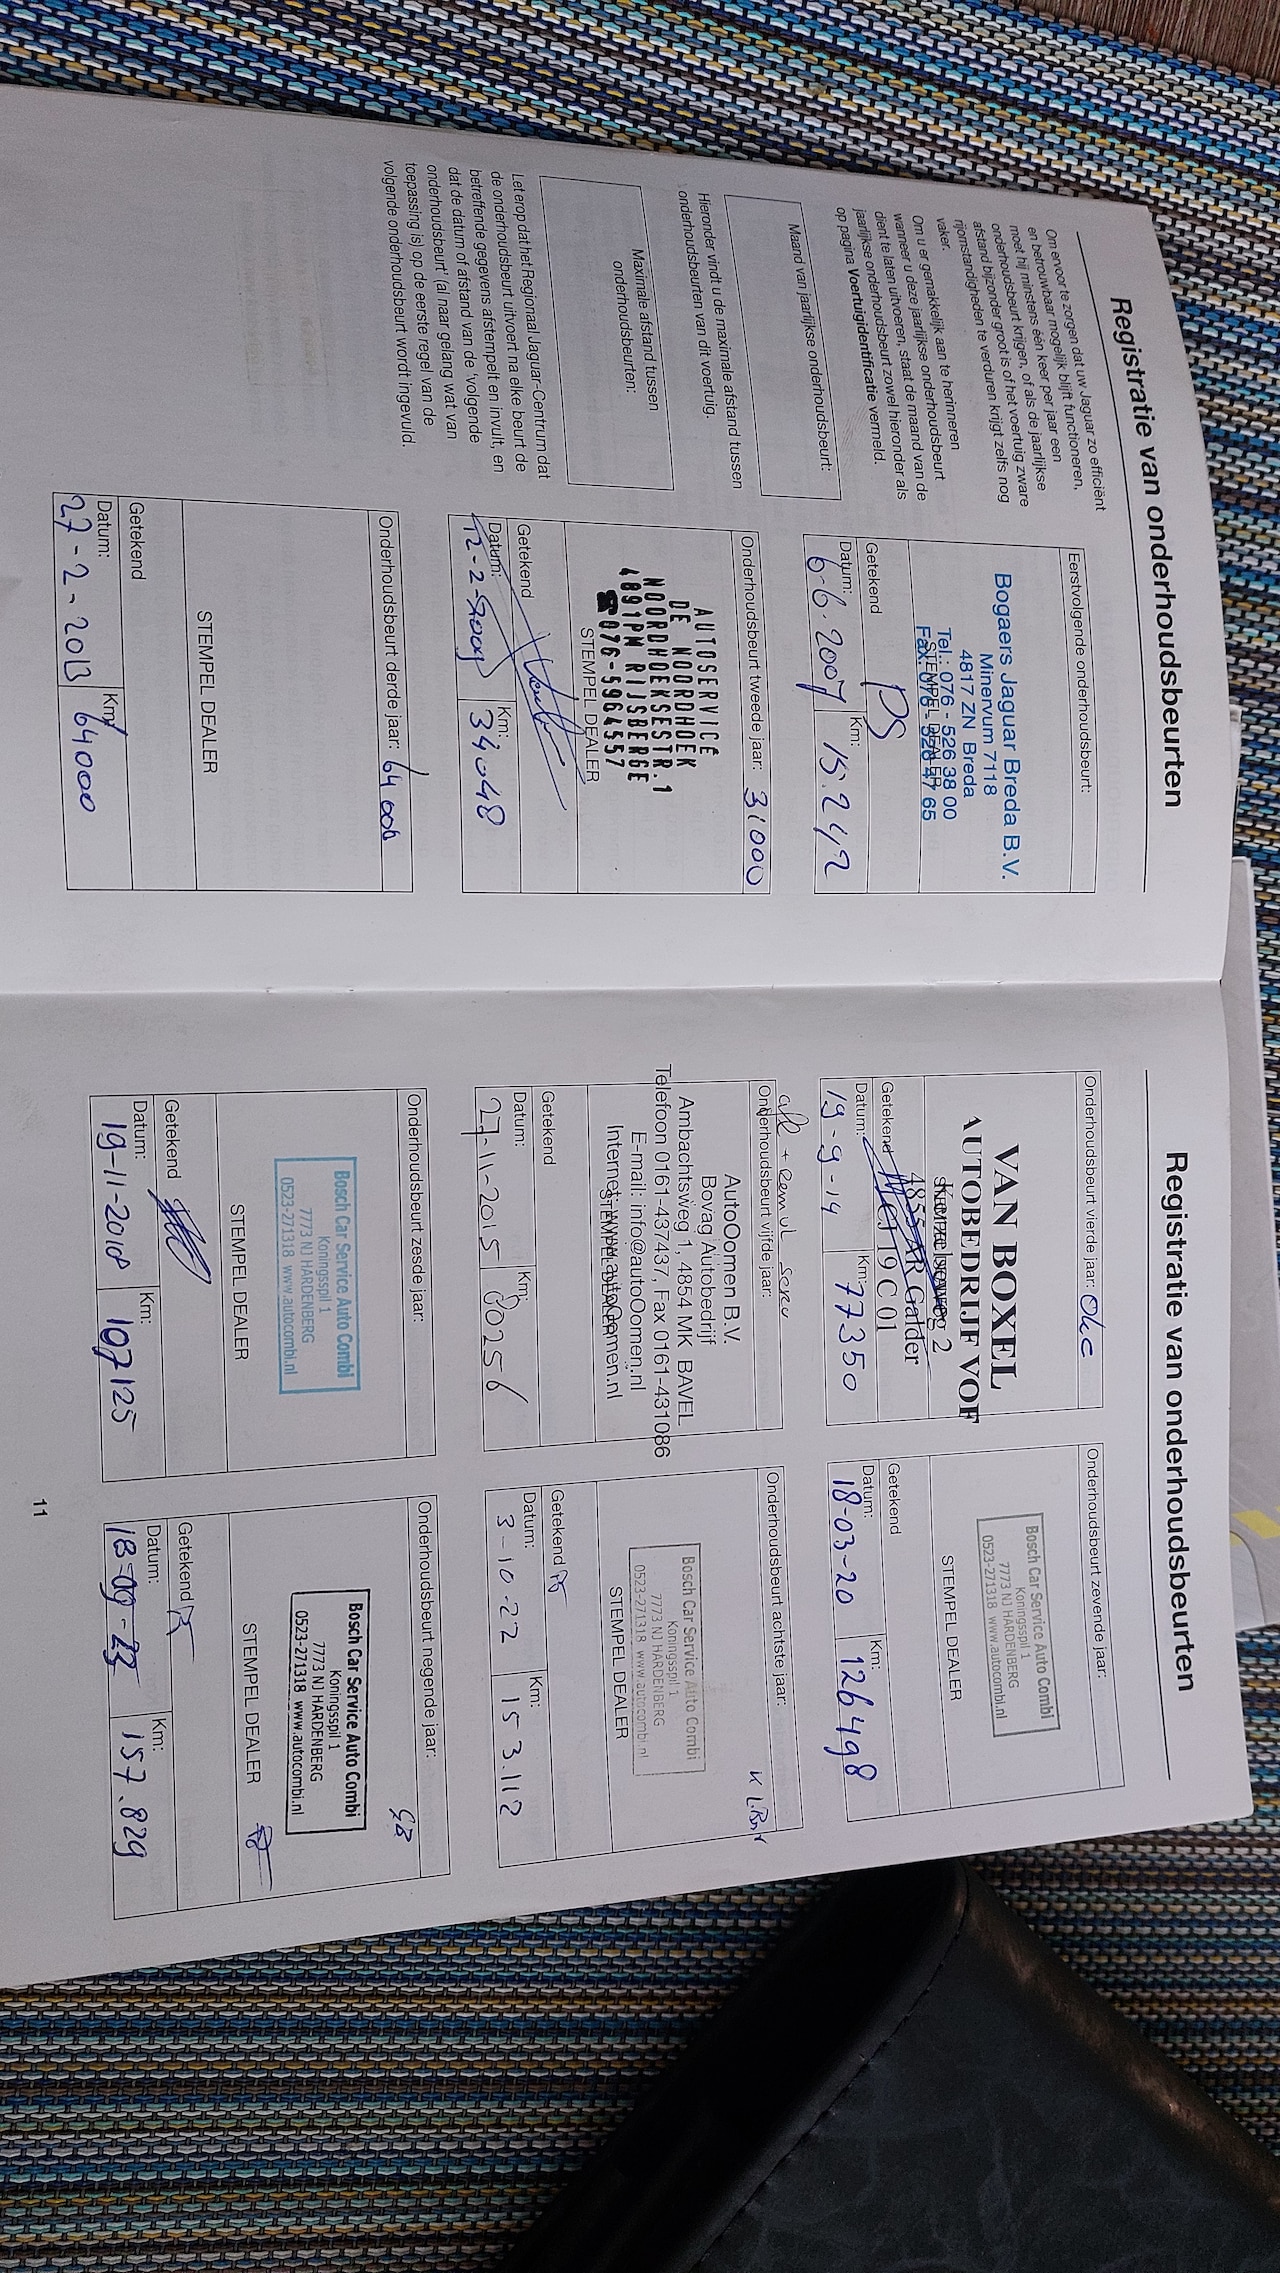 Registratie van onderhoudsbeurten
Om ervoor te zorgen dat uw Jaguar zo efficiënt
en betrouwbaar mogelijk blijft functioneren,
moet hij minstens één keer per jaar een
onderhoudsbeurt krijgen, of als de jaarlijkse
afstand bijzonder groot is of het voertuig zware
rijomstandigheden te verduren krijgt zelfs nog
vaker.
Om u er gemakkelijk aan te herinneren
wanneer u deze jaarlijkse onderhoudsbeurt
dient te laten uitvoeren, staat de maand van de
jaarlijkse onderhoudsbeurt zowel hieronder als
op pagina Voertuigidentificatie vermeld.
Maand van jaarlijkse onderhoudsbeurt:
Hieronder vindt u de maximale afstand tussen
onderhoudsbeurten van dit voertuig.
Maximale afstand tussen
onderhoudsbeurten:
Let erop dat het Regionaal Jaguar-Centrum dat
de onderhoudsbeurt uitvoert na elke beurt de
betreffende gegevens afstempelt en invult, en
dat de datum of afstand van de 'volgende
onderhoudsbeurt' (al naar gelang wat van
toepassing is) op de eerste regel van de
volgende onderhoudsbeurt wordt ingevuld.
Eerstvolgende onderhoudsbeurt:
Bogaers Jaguar Breda B.V.
Minervum 7118
4817 ZN Breda
Tel.: 076 - 526 38 00
STEMPEL DEALER
Fax: 076 - 526 47 65
Getekend PS
Datum: 6-6-2007 Km: 15.242
Onderhoudsbeurt tweede jaar: 31000
AUTOSERVICE
DE NOORDHOEK
NOORDHOEKSESTR.1
4891PM RIJSBERGE
☎076-5964557
STEMPEL DEALER
Getekend
Datum: 12-2-2009 Km: 34048
Onderhoudsbeurt derde jaar: 64000
STEMPEL DEALER
Getekend
Datum: 27-2-2013 Km: 64000
Registratie van onderhoudsbeurten
Onderhoudsbeurt vierde jaar: Olie
VAN BOXEL
AUTOBEDRIJF VOF
STEMPEL DEALER
4855 AR Galder
Getekend
Datum: 19-9-14 Km: 77350
Onderhoudsbeurt vijfde jaar:
AutoOomen B.V.
Bovag Autobedrijf
Ambachtsweg 1, 4854 MK BAVEL
Telefoon 0161-437437, Fax 0161-431086
E-mail: info@autoOomen.nl
Internet: www.autoOomen.nl
STEMPEL DEALER
Getekend
Datum: 27-11-2015 Km: 80256
Onderhoudsbeurt zesde jaar:
Bosch Car Service Auto Combi
Koningsspil 1
7773 NJ HARDENBERG
0523-271318 www.autocombi.nl
STEMPEL DEALER
Getekend
Datum: 19-11-2018 Km: 107125
Onderhoudsbeurt zevende jaar:
Bosch Car Service Auto Combi
Koningsspil 1
7773 NJ HARDENBERG
0523-271318 www.autocombi.nl
STEMPEL DEALER
Getekend
Datum: 18-03-20 Km: 126498
Onderhoudsbeurt achtste jaar:
Bosch Car Service Auto Combi
Koningsspil 1
7773 NJ HARDENBERG
0523-271318 www.autocombi.nl
STEMPEL DEALER
Getekend
Datum: 3-10-22 Km: 153.112
Onderhoudsbeurt negende jaar: GB
Bosch Car Service Auto Combi
Koningsspil 1
7773 NJ HARDENBERG
0523-271318 www.autocombi.nl
STEMPEL DEALER
Getekend
Datum: 18-09-23 Km: 157.829
11